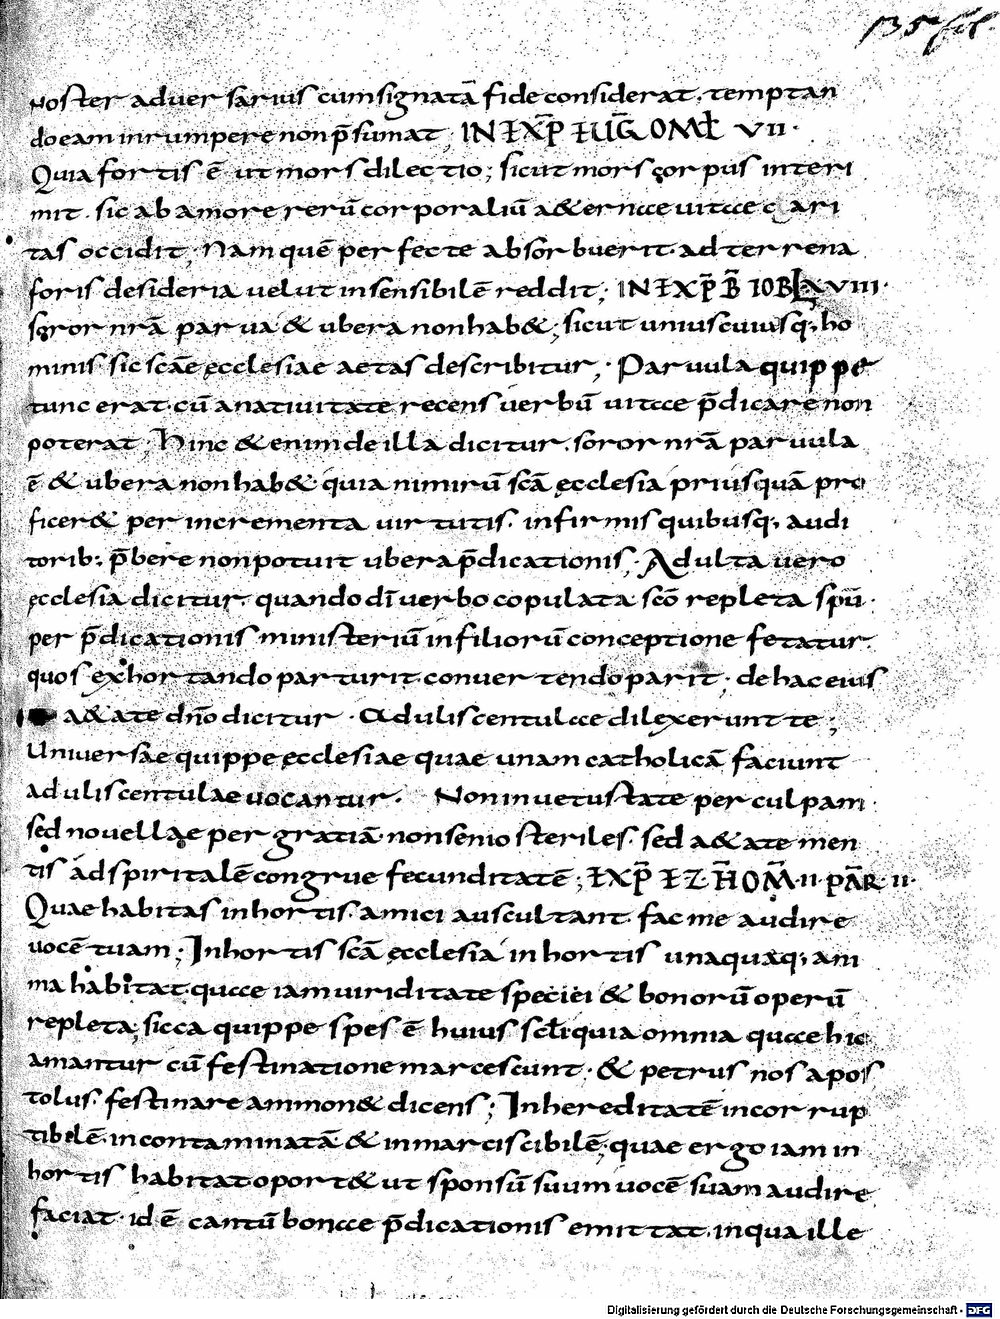 135
noster aduersarius cumsignatā fide considerat, temptan
do eam inrumpere non p̄sumat; IN EXP̄ EUḠ OML̄ VII·
Quia fortis ē ut mors dilectio; sicut mors corpus interi
mit· sic ab amore rerū corporaliū aeternae uitae cari
tas occidit; Nam quē perfecte absorbuerit· ad terrena
foris desideria uelut insensibilē reddit; IN EXP̄ B̄ IOB L XVIII·
soror nrā parua & ubera non hab&; sicut uniuscuiusq; ho
minis sic scāe ęcclesiae aetas describitur; Paruula quippe
tunc erat· cū anatiuitate recens uerbū uitae p̄dicare non
poterat; Hinc & enim de illa dicitur· soror nrā paruula
ē & ubera non hab&· quia nimirū scā ęcclesia priusquā pro
ficer& per incrementa uirtutis· infirmis quibusq; audi
torib; p̄bere non potuit ubera p̄dicationis; Adulta uero
ęcclesia dicitur· quando dī uerbo copulata scō repleta spū·
per p̄dicationis ministeriū in filiorū conceptione fetatur·
quos exhortando parturit· conuertendo parit; de hac eius
a&ate dnō dicitur· Aduliscentulae dilexerunt te;
Uniuersae quippe ęcclesiae quae unam catholicā faciunt
aduliscentulae uocantur· Non in uetustate per culpam·
sed nouellae per gratiā· non senio steriles· sed a&ate men
tis ad spiritalē congrue fecunditatē; EXP̄ EZ H̄OM̄· II· PAR̄ II·
Quae habitas in hortis· amici auscultant· fac me audire
uocē tuam; In hortis scā ęcclesia in hortis unaquaq; ani
ma habitat· quae iam uiriditate speciei & bonorū operū
repleta; sicca quippe spes ē huius sclī quia omnia quae hic
amantur cū festinatione marcescunt· & petrus nos apos
tolus· festinare ammon& dicens; In hereditatē incorrup
tibilē· incontaminatā & inmarciscibilē; quae ergo iam in
hortis habitat oport& ut sponsū suum uocē suam audire
faciat· id ē cantū bonae p̄dicationis emittat· in qua ille
Digitalisierung gefördert durch die Deutsche Forschungsgemeinschaft - DFG